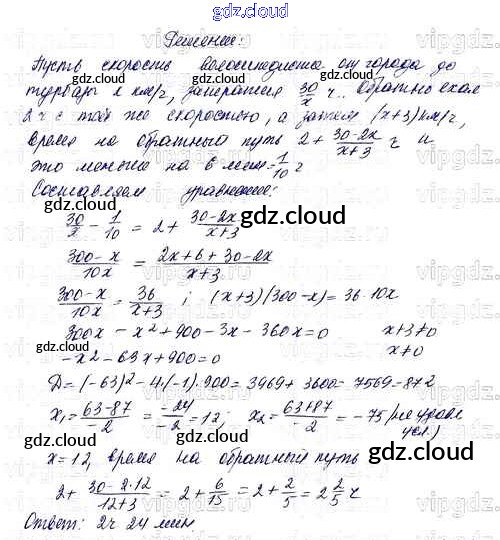 gdz.cloud
Решение:
Пусть скорость велосипедиста от города до
турбазы x км/ч, затратил 30/x ч. Обратно ехал
2 ч с той же скоростью, а затем (x+3) км/ч,
время на обратный путь 2 + (30-2x)/(x+3) ч и
это меньше на 6 мин = 1/10 ч
Составляем уравнение:
30/x - 1/10 = 2 + (30-2x)/(x+3)
(300-x)/10x = (2x+6+30-2x)/(x+3)
(300-x)/10x = 36/(x+3) ; (x+3)(300-x) = 36·10x
300x - x² + 900 - 3x - 360x = 0 x+3≠0
-x² - 63x + 900 = 0 x≠0
D = (-63)² - 4·(-1)·900 = 3969 + 3600 = 7569 = 87²
x₁ = (63-87)/-2 = -24/-2 = 12; x₂ = (63+87)/-2 = -75 (не удовл.
усл.)
x = 12, время на обратный путь
2 + (30-2·12)/(12+3) = 2 + 6/15 = 2 + 2/5 = 2 2/5 ч
Ответ: 2 ч 24 мин.